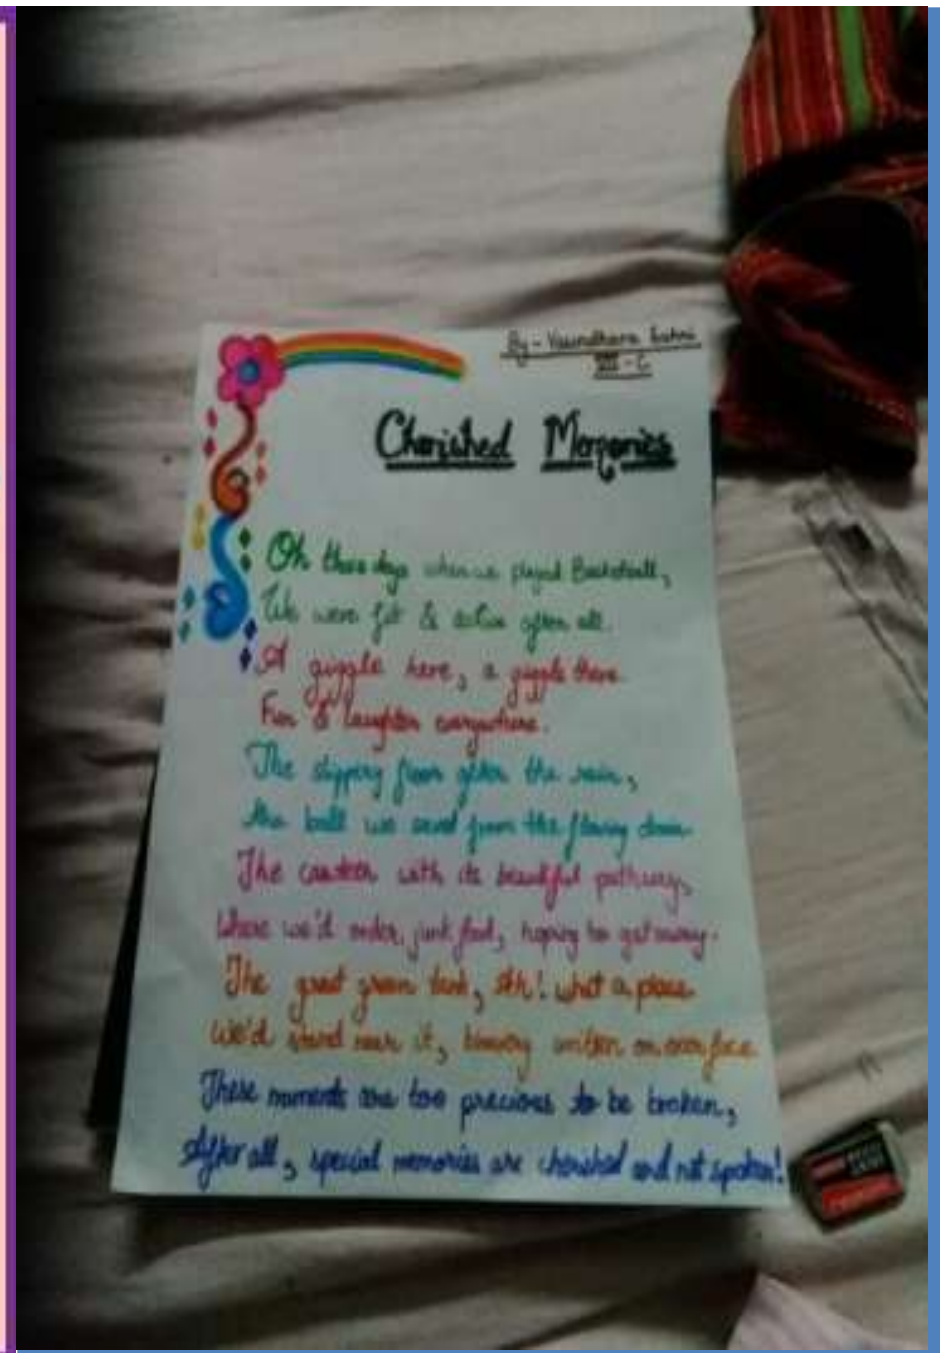 By - Vasundhara Sahni
VIII - C
Cherished Memories
Oh those days when we played Basketball,
We were fit & active after all.
A giggle here, a giggle there
Fun & laughter everywhere.
The slippery floor after the rain,
the ball we saved from the flowing drain.
The canteen with its beautiful pathway,
Where we'd order junk food, hoping to get away.
The great green tank, Ah! what a place
We'd stand near it, bravery written on our face
These moments are too precious to be broken,
After all, special memories are cherished and not spoken!